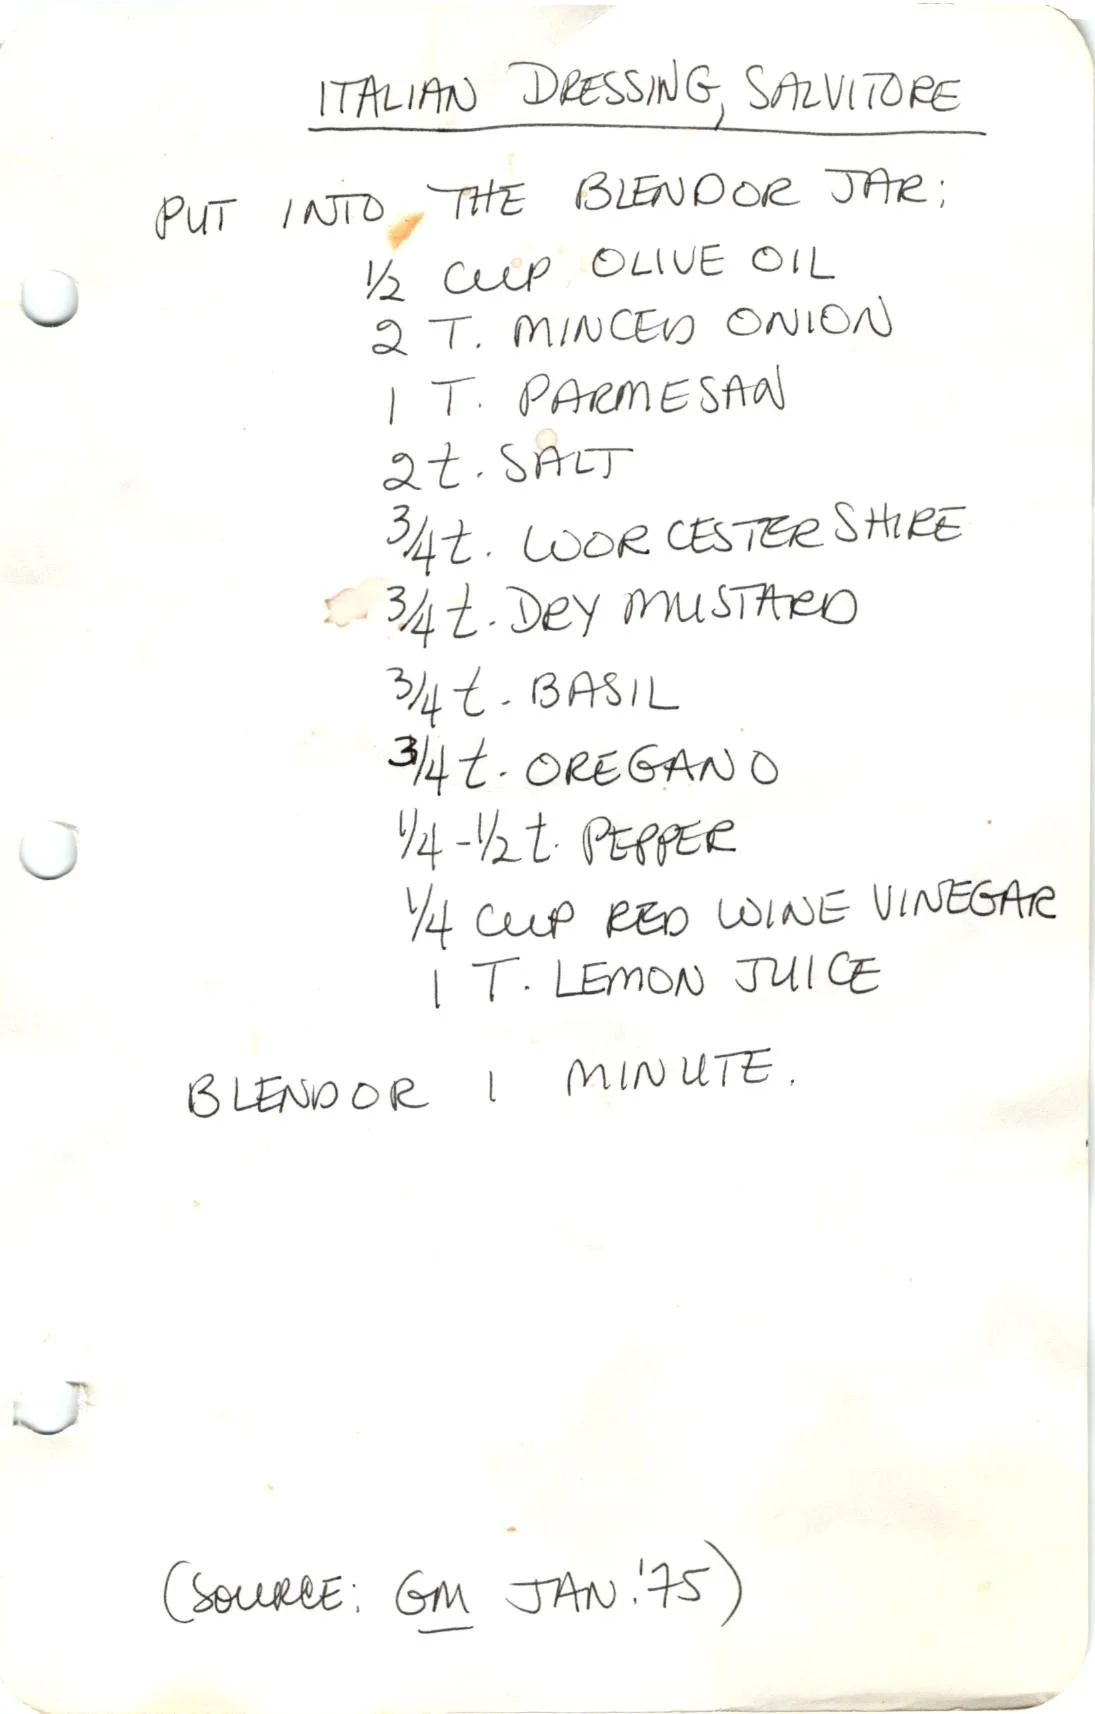 ITALIAN DRESSING, SALVITORE
PUT INTO THE BLENDOR JAR:
1/2 CUP OLIVE OIL
2 T. MINCED ONION
1 T. PARMESAN
2 t. SALT
3/4 t. WORCESTERSHIRE
3/4 t. DRY MUSTARD
3/4 t. BASIL
3/4 t. OREGANO
1/4 - 1/2 t. PEPPER
1/4 CUP RED WINE VINEGAR
1 T. LEMON JUICE
BLENDOR 1 MINUTE.
(SOURCE: GM JAN. '75)